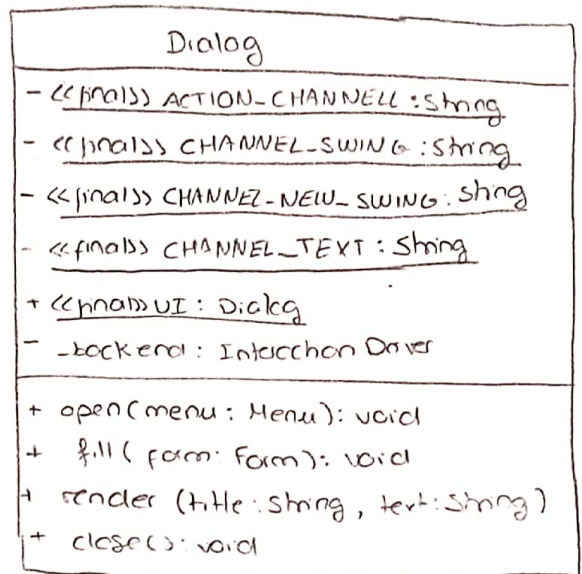 Dialog
- <<final>> ACTION_CHANNELL : String
- <<final>> CHANNEL_SWING : String
- <<final>> CHANNEL_NEW_SWING : String
- <<final>> CHANNEL_TEXT : String
+ <<final>> UI : Dialog
- _backend : Interaction Driver
+ open(menu : Menu) : void
+ fill( form : Form) : void
+ render (title : String, text : String)
+ close() : void